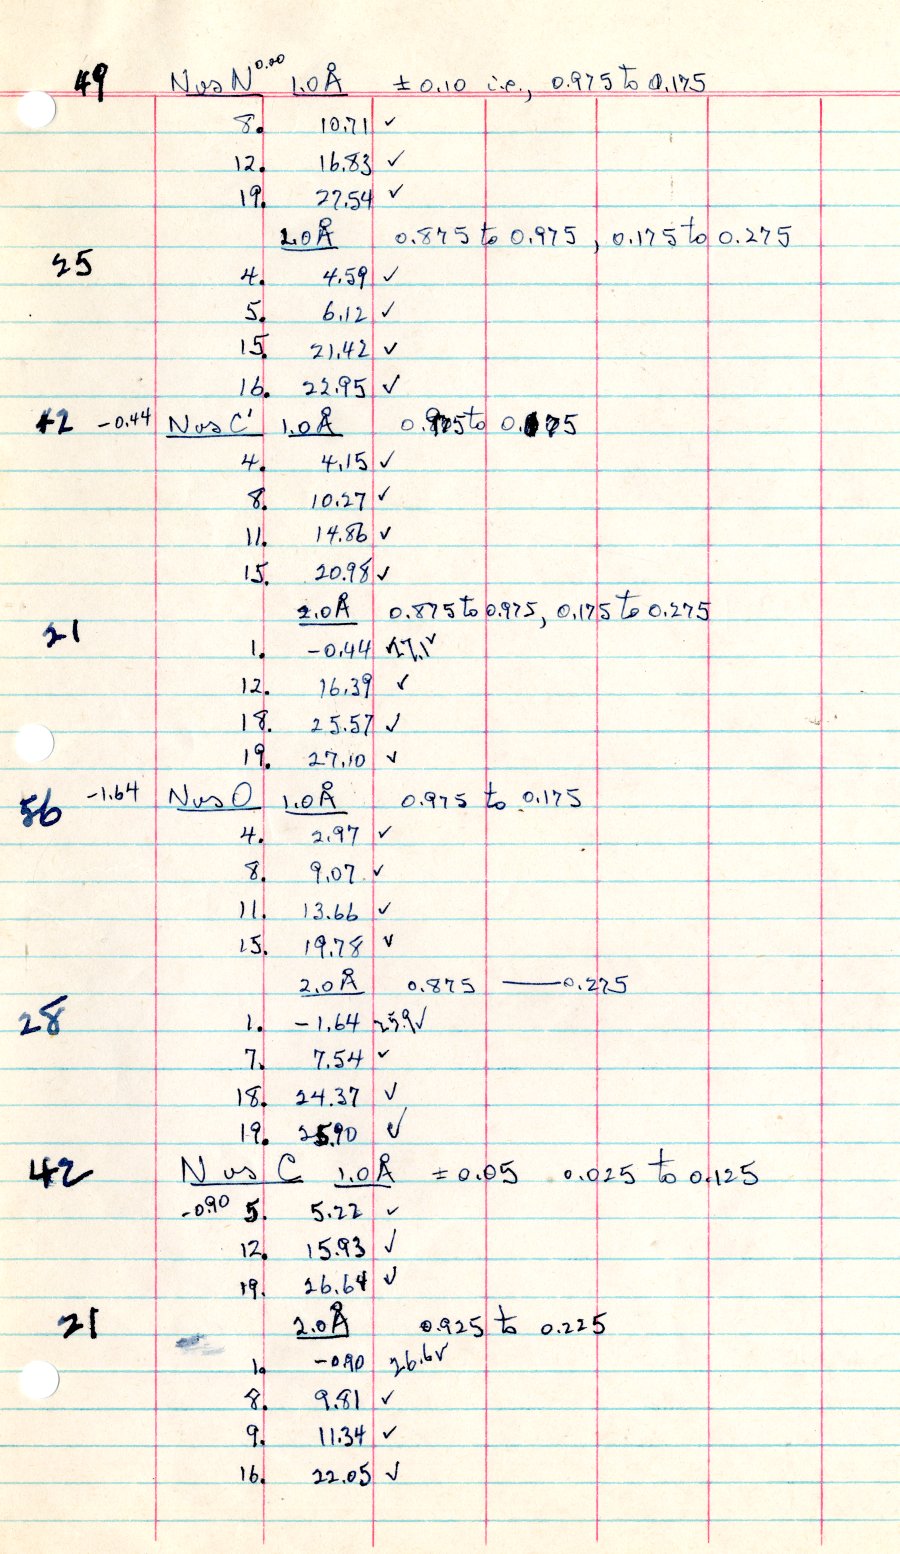 49 N vs N 0.00 1.0Å ±0.10 i.e., 0.975 to 0.175
8. 10.71 ✓
12. 16.83 ✓
19. 27.54 ✓
2.0Å 0.875 to 0.975, 0.175 to 0.275
25
4. 4.59 ✓
5. 6.12 ✓
15. 21.42 ✓
16. 22.95 ✓
42 -0.44 N vs C' 1.0Å 0.975 to 0.175
4. 4.15 ✓
8. 10.27 ✓
11. 14.86 ✓
15. 20.98 ✓
2.0Å 0.875 to 0.975, 0.175 to 0.275
21
1. -0.44 27.1 ✓
12. 16.39 ✓
18. 25.57 ✓
19. 27.10 ✓
56 -1.64 N vs O 1.0Å 0.975 to 0.175
4. 2.97 ✓
8. 9.07 ✓
11. 13.66 ✓
15. 19.78 ✓
2.0Å 0.875 — 0.275
28
1. -1.64 25.9 ✓
7. 7.54 ✓
18. 24.37 ✓
19. 25.90 ✓
42 N vs C 1.0Å ±0.05 0.025 to 0.125
-0.90 5. 5.22 ✓
12. 15.93 ✓
19. 26.64 ✓
21 2.0Å 0.925 to 0.225
1. -0.90 26.6 ✓
8. 9.81 ✓
9. 11.34 ✓
16. 22.05 ✓